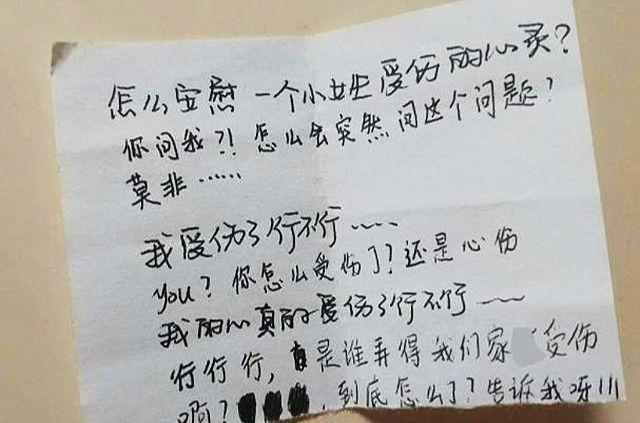 怎么安慰一个小女生受伤的心灵?
你问我?! 怎么会突然问这个问题?
莫非……
我受伤了行不行……
you? 你怎么受伤了? 还是心伤
我的心真的受伤了行不行……
行行行, 是谁弄得我们家 受伤
啊? , 到底怎么了? 告诉我呀!!!